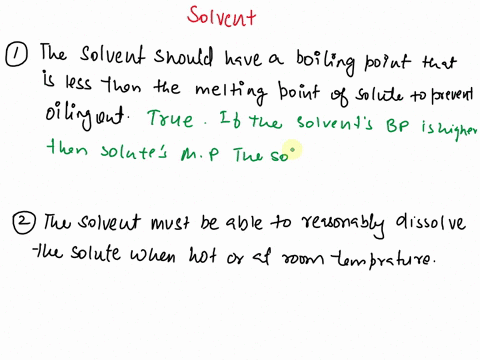 Solvent
① The solvent should have a boiling point that
is less then the melting point of solute to prevent
oiling out. True. If the solvent's BP is higher
then solute's M.P The so
② The solvent must be able to reasonably dissolve
the solute when hot or at room temprature.